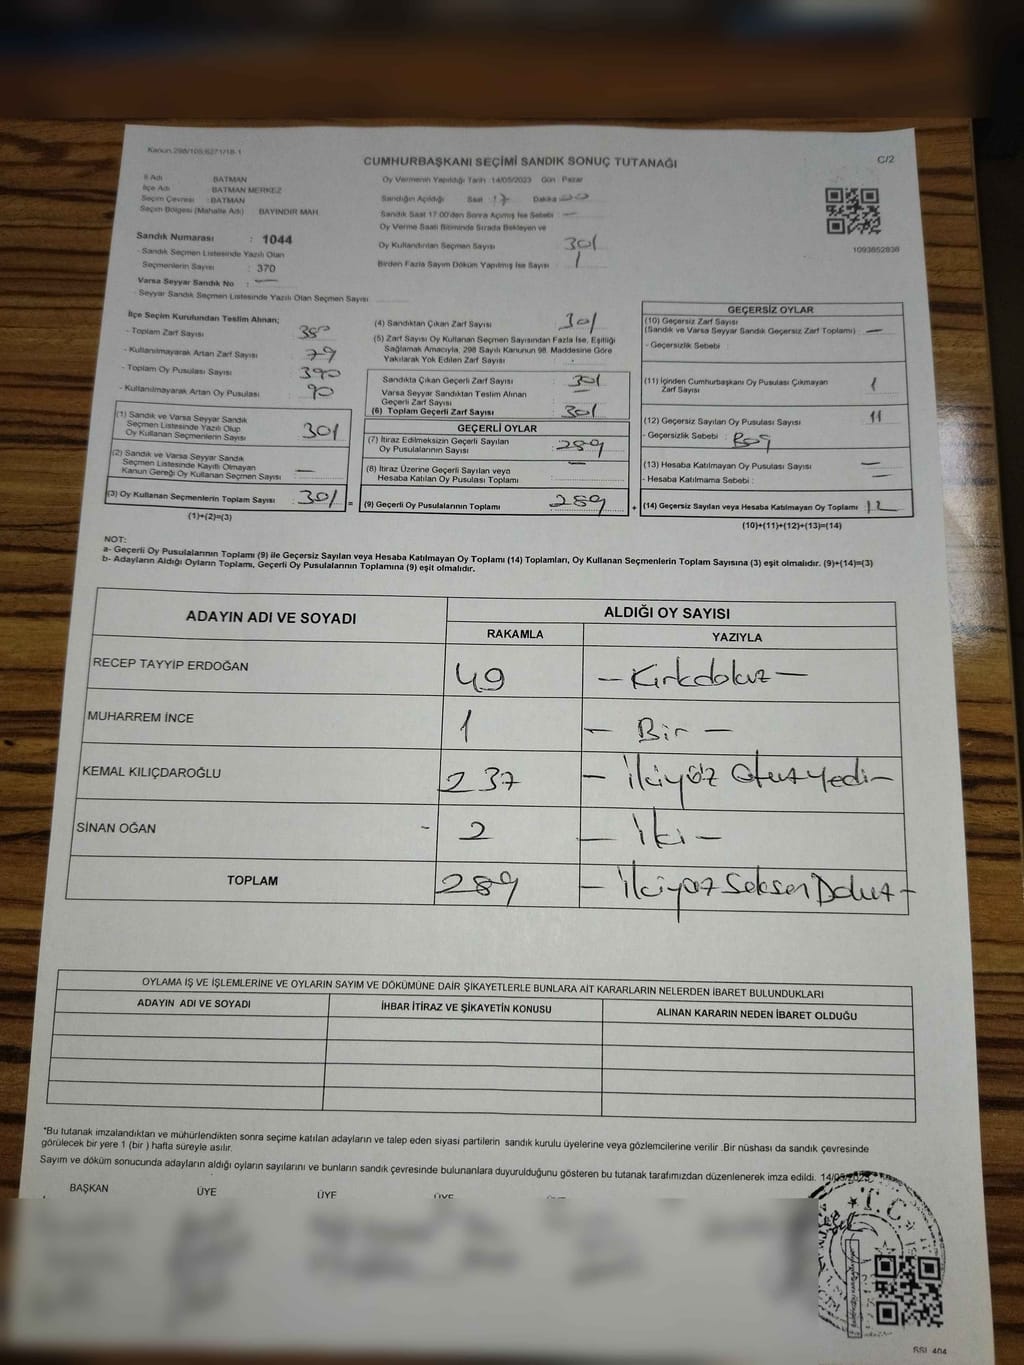 Kanun.298/105;6271/18-1
CUMHURBAŞKANI SEÇİMİ SANDIK SONUÇ TUTANAĞI
C/2
İl Adı BATMAN
İlçe Adı BATMAN MERKEZ
Seçim Çevresi : BATMAN
Seçim Bölgesi (Mahalle Adı) BAYINDIR MAH.
Sandık Numarası : 1044
- Sandık Seçmen Listesinde Yazılı Olan
Seçmenlerin Sayısı : 370
Varsa Seyyar Sandık No : —
- Seyyar Sandık Seçmen Listesinde Yazılı Olan Seçmen Sayısı
Oy Vermenin Yapıldığı Tarih :14/05/2023 Gün : Pazar
Sandığın Açıldığı Saat : 17 Dakika
Sandık Saat 17:00'den Sonra Açılmış İse Sebebi : —
Oy Verme Saati Bitiminde Sırada Bekleyen ve
Oy Kullandırılan Seçmen Sayısı 301
Birden Fazla Sayım Döküm Yapılmış İse Sayısı 1
1093852836
İlçe Seçim Kurulundan Teslim Alınan;
- Toplam Zarf Sayısı 380
- Kullanılmayarak Artan Zarf Sayısı 79
- Toplam Oy Pusulası Sayısı 390
- Kullanılmayarak Artan Oy Pusulası 90
(1) Sandık ve Varsa Seyyar Sandık
Seçmen Listesinde Yazılı Olup
Oy Kullanan Seçmenlerin Sayısı 301
(2) Sandık ve Varsa Seyyar Sandık
Seçmen Listesinde Kayıtlı Olmayan
Kanun Gereği Oy Kullanan Seçmen Sayısı —
(3) Oy Kullanan Seçmenlerin Toplam Sayısı 301 =
(1)+(2)=(3)
(4) Sandıktan Çıkan Zarf Sayısı 301
(5) Zarf Sayısı Oy Kullanan Seçmen Sayısından Fazla İse, Eşitliği
Sağlamak Amacıyla, 298 Sayılı Kanunun 98. Maddesine Göre
Yakılarak Yok Edilen Zarf Sayısı
Sandıkta Çıkan Geçerli Zarf Sayısı 301
Varsa Seyyar Sandıktan Teslim Alınan
Geçerli Zarf Sayısı —
(6) Toplam Geçerli Zarf Sayısı 301
GEÇERLİ OYLAR
(7) İtiraz Edilmeksizin Geçerli Sayılan
Oy Pusulalarının Sayısı 289
(8) İtiraz Üzerine Geçerli Sayılan veya
Hesaba Katılan Oy Pusulası Toplamı —
(9) Geçerli Oy Pusulalarının Toplamı 289 +
GEÇERSİZ OYLAR
(10) Geçersiz Zarf Sayısı
(Sandık ve Varsa Seyyar Sandık Geçersiz Zarf Toplamı) : —
- Geçersizlik Sebebi :
(11) İçinden Cumhurbaşkanı Oy Pusulası Çıkmayan
Zarf Sayısı 1
(12) Geçersiz Sayılan Oy Pusulası Sayısı 11
- Geçersizlik Sebebi : Boş
(13) Hesaba Katılmayan Oy Pusulası Sayısı —
- Hesaba Katılmama Sebebi : —
(14) Geçersiz Sayılan veya Hesaba Katılmayan Oy Toplamı 12
(10)+(11)+(12)+(13)=(14)
NOT:
a- Geçerli Oy Pusulalarının Toplamı (9) ile Geçersiz Sayılan veya Hesaba Katılmayan Oy Toplamı (14) Toplamları, Oy Kullanan Seçmenlerin Toplam Sayısına (3) eşit olmalıdır. (9)+(14)=(3)
b- Adayların Aldığı Oyların Toplamı, Geçerli Oy Pusulalarının Toplamına (9) eşit olmalıdır.
ADAYIN ADI VE SOYADI ALDIĞI OY SAYISI
RAKAMLA YAZIYLA
RECEP TAYYİP ERDOĞAN 49 — Kırkdokuz —
MUHARREM İNCE 1 — Bir —
KEMAL KILIÇDAROĞLU 237 — İkiyüz Otuzyedi —
SİNAN OĞAN - 2 — İki —
TOPLAM 289 — İkiyüz Seksen Dokuz —
OYLAMA İŞ VE İŞLEMLERİNE VE OYLARIN SAYIM VE DÖKÜMÜNE DAİR ŞİKAYETLERLE BUNLARA AİT KARARLARIN NELERDEN İBARET BULUNDUKLARI
ADAYIN ADI VE SOYADI İHBAR İTİRAZ VE ŞİKAYETİN KONUSU ALINAN KARARIN NEDEN İBARET OLDUĞU
*Bu tutanak imzalandıktan ve mühürlendikten sonra seçime katılan adayların ve talep eden siyasi partilerin sandık kurulu üyelerine veya gözlemcilerine verilir .Bir nüshası da sandık çevresinde
görülecek bir yere 1 (bir ) hafta süreyle asılır.
Sayım ve döküm sonucunda adayların aldığı oyların sayılarını ve bunların sandık çevresinde bulunanlara duyurulduğunu gösteren bu tutanak tarafımızdan düzenlenerek imza edildi. 14/05/2023
BAŞKAN ÜYE ÜYE ÜYE
T.C.